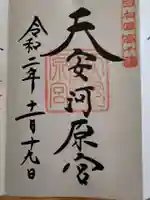 天安河原宮
令和二年十一月十九日